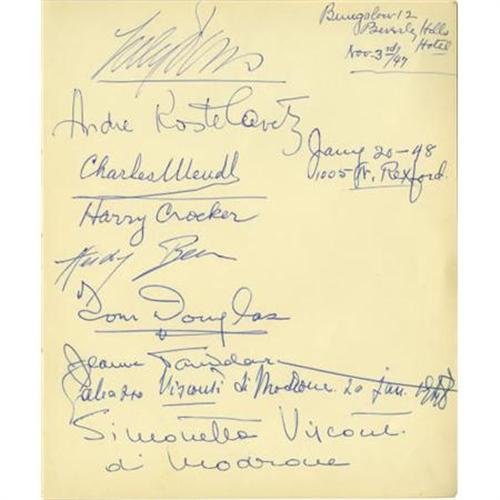 Bungalow 12
Beverly Hills
Hotel
Nov. 3rd/47
Lily Pons
Andre Kostelanetz
Jany 20-48
1005 N. Rexford.
Charles Mendl
Harry Crocker
Dom Douglas
Jeanne
Visconti di Modrone. 20 Jan. 1948
Simonetta Visconti
di Modrone